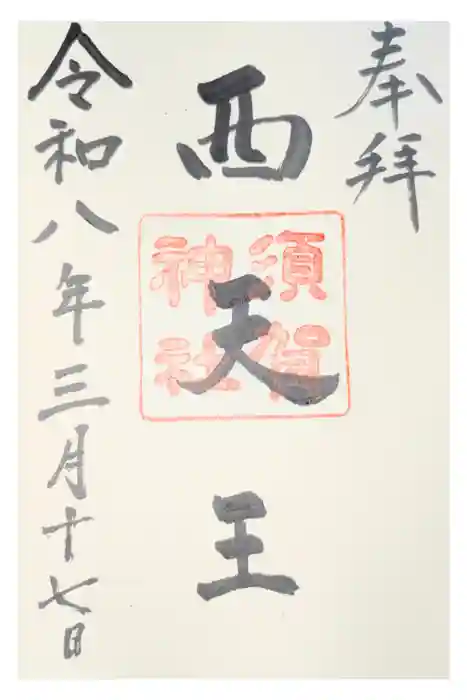 奉拝
西天王
須賀
神社
令和八年三月十七日